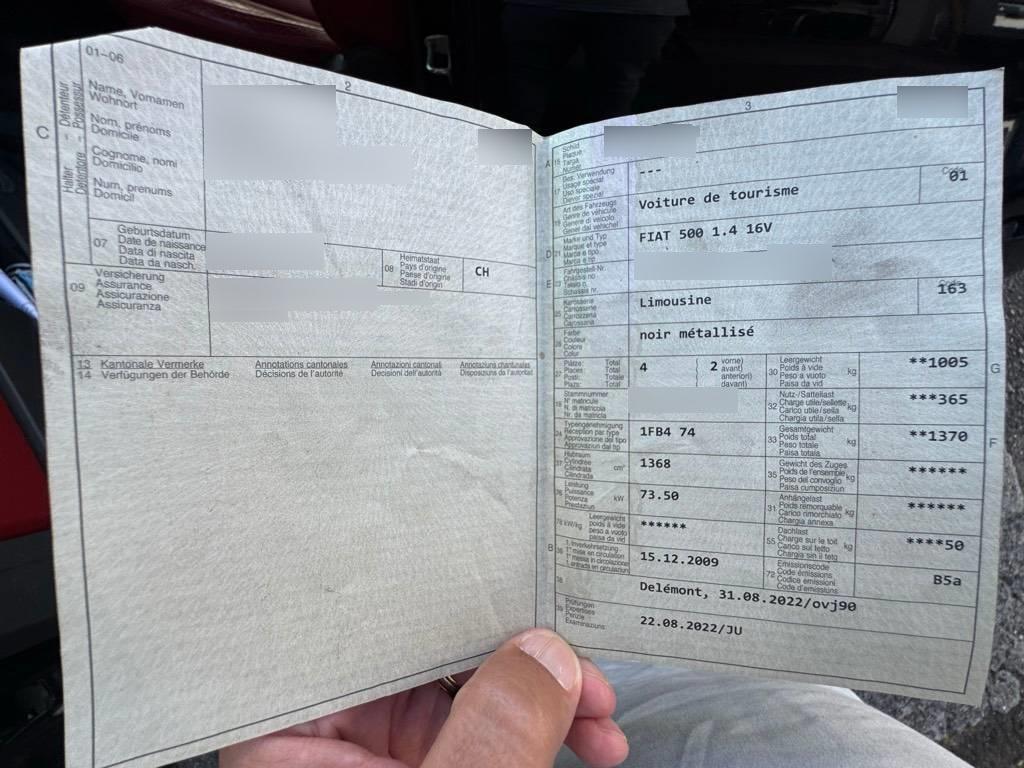 01–06
2
C
Halter - Détenteur
Detentore - Possessur
Name, Vornamen
Wohnort
Nom, prénoms
Domicile
Cognome, nomi
Domicilio
Num, prenums
Domicil
07
Geburtsdatum
Date de naissance
Data di nascita
Data da nasch.
08
Heimatstaat
Pays d'origine
Paese d'origine
Stadi d'origin
CH
09
Versicherung
Assurance
Assicurazione
Assicuranza
13 Kantonale Vermerke Annotations cantonales Annotazioni cantonali Annotaziuns chantunalas
14 Verfügungen der Behörde Décisions de l'autorité Decisioni dell'autorità Disposiziuns da l'autoritad
3
A 15
Schild
Plaque
Targa
Numer
17
Bes. Verwendung
Usage spécial
Uso speciale
Diever spezial
---
19
Art des Fahrzeugs
Genre de véhicule
Genere di veicolo
Gener dal vehichel
Voiture de tourisme
Code
01
D 21
Marke und Typ
Marque et type
Marca e tipo
Marca e tip
FIAT 500 1.4 16V
E 23
Fahrgestell-Nr.
Châssis no
Telaio n.
Schassis nr.
25
Karosserie
Carrosserie
Carrozzeria
Carossaria
Limousine
163
26
Farbe
Couleur
Colore
Colur
noir métallisé
27
Plätze: Total
Places: Total
Posti: Totale
Plazs: Total
4
2
vorne)
avant)
anteriori)
davant)
30
Leergewicht
Poids à vide
Peso a vuoto
Paisa da vid
kg
**1005
G
18
Stammnummer
N° matricule
N. di matricola
Nr. da matricla
32
Nutz-/Sattellast
Charge utile/sellette
Carico utile/sella
Chargia utila/sella
kg
***365
24
Typengenehmigung
Réception par type
Approvazione del tipo
Approvaziun dal tip
1FB4 74
33
Gesamtgewicht
Poids total
Peso totale
Paisa totala
kg
**1370
F
37
Hubraum
Cylindrée
Cilindrata
Cilindrada
cm³
1368
35
Gewicht des Zuges
Poids de l'ensemble
Peso del convoglio
Paisa cumposiziun
kg
******
76
Leistung
Puissance
Potenza
Prestaziun
kW
73.50
31
Anhängelast
Poids remorquable
Carico rimorchiato
Chargia annexa
kg
******
78 kW/kg
Leergewicht
poids à vide
peso a vuoto
paisa da vid
******
55
Dachlast
Charge sur le toit
Carico sul tetto
Chargia sin il tetg
kg
****50
B 36
1. Inverkehrsetzung
1re mise en circulation
1a messa in circolazione
1. entrada en circulaziun
15.12.2009
72
Emissionscode
Code émissions
Codice emissioni
Code d'emissiuns
B5a
38
Delémont, 31.08.2022/ovj90
39
Prüfungen
Expertises
Perizie
Examinaziuns
22.08.2022/JU